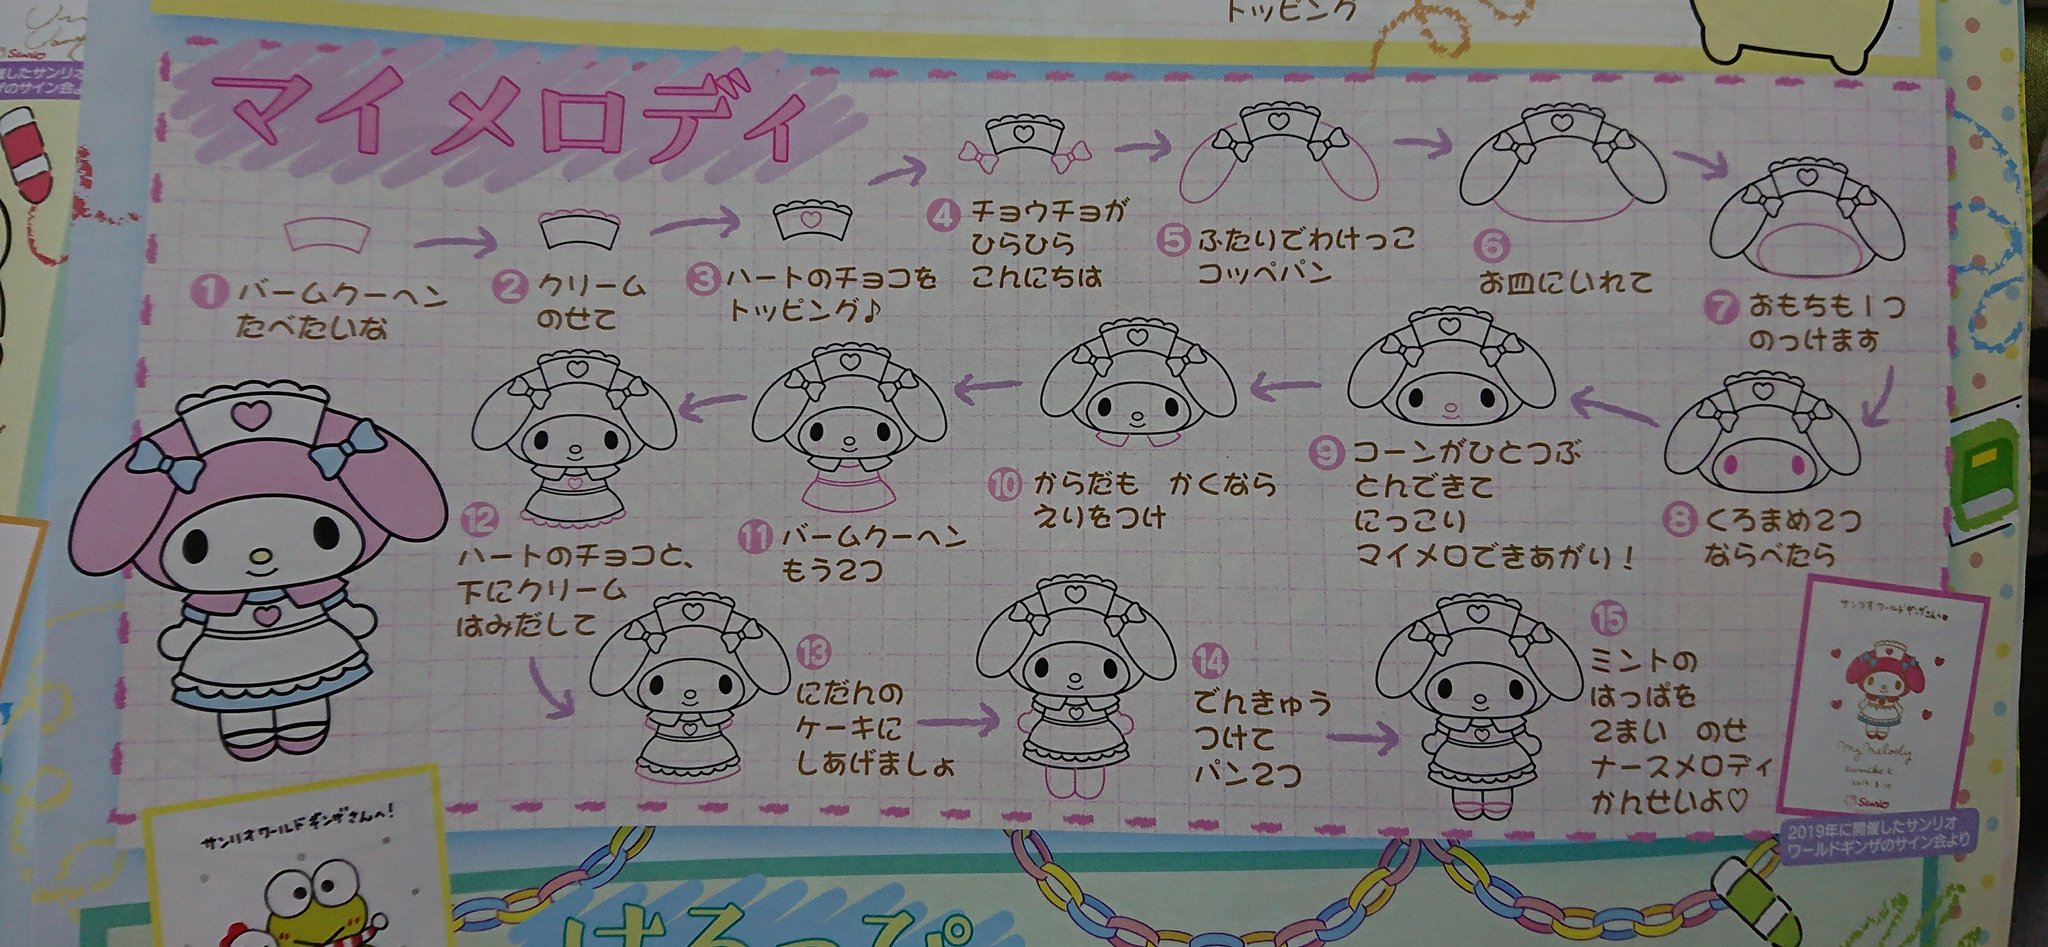 トッピング
Sanrio
催したサンリオ
ギのサイン会よ
マイメロディ
① バームクーヘン
たべたいな
② クリーム
のせて
③ ハートのチョコを
トッピング♪
④ チョウチョが
ひらひら
こんにちは
⑤ ふたりでわけっこ
コッペパン
⑥
お皿にいれて
⑦ おもちも1つ
のっけます
⑧ くろまめ2つ
ならべたら
⑨ コーンがひとつぶ
とんできて
にっこり
マイメロできあがり!
⑩ からだも かくなら
えりをつけ
⑪ バームクーヘン
もう2つ
⑫
ハートのチョコと、
下にクリーム
はみだして
⑬
にだんの
ケーキに
しあげましょ
⑭
でんきゅう
つけて
パン2つ
⑮
ミントの
はっぱを
2まい のせ
ナースメロディ
かんせいよ♡
サンリオワールドギンザさんへ♥
My Melody
Sanrio
2019年に開催したサンリオ
ワールドギンザのサイン会より
サンリオワールドギンザさんへ!
けろっぴ